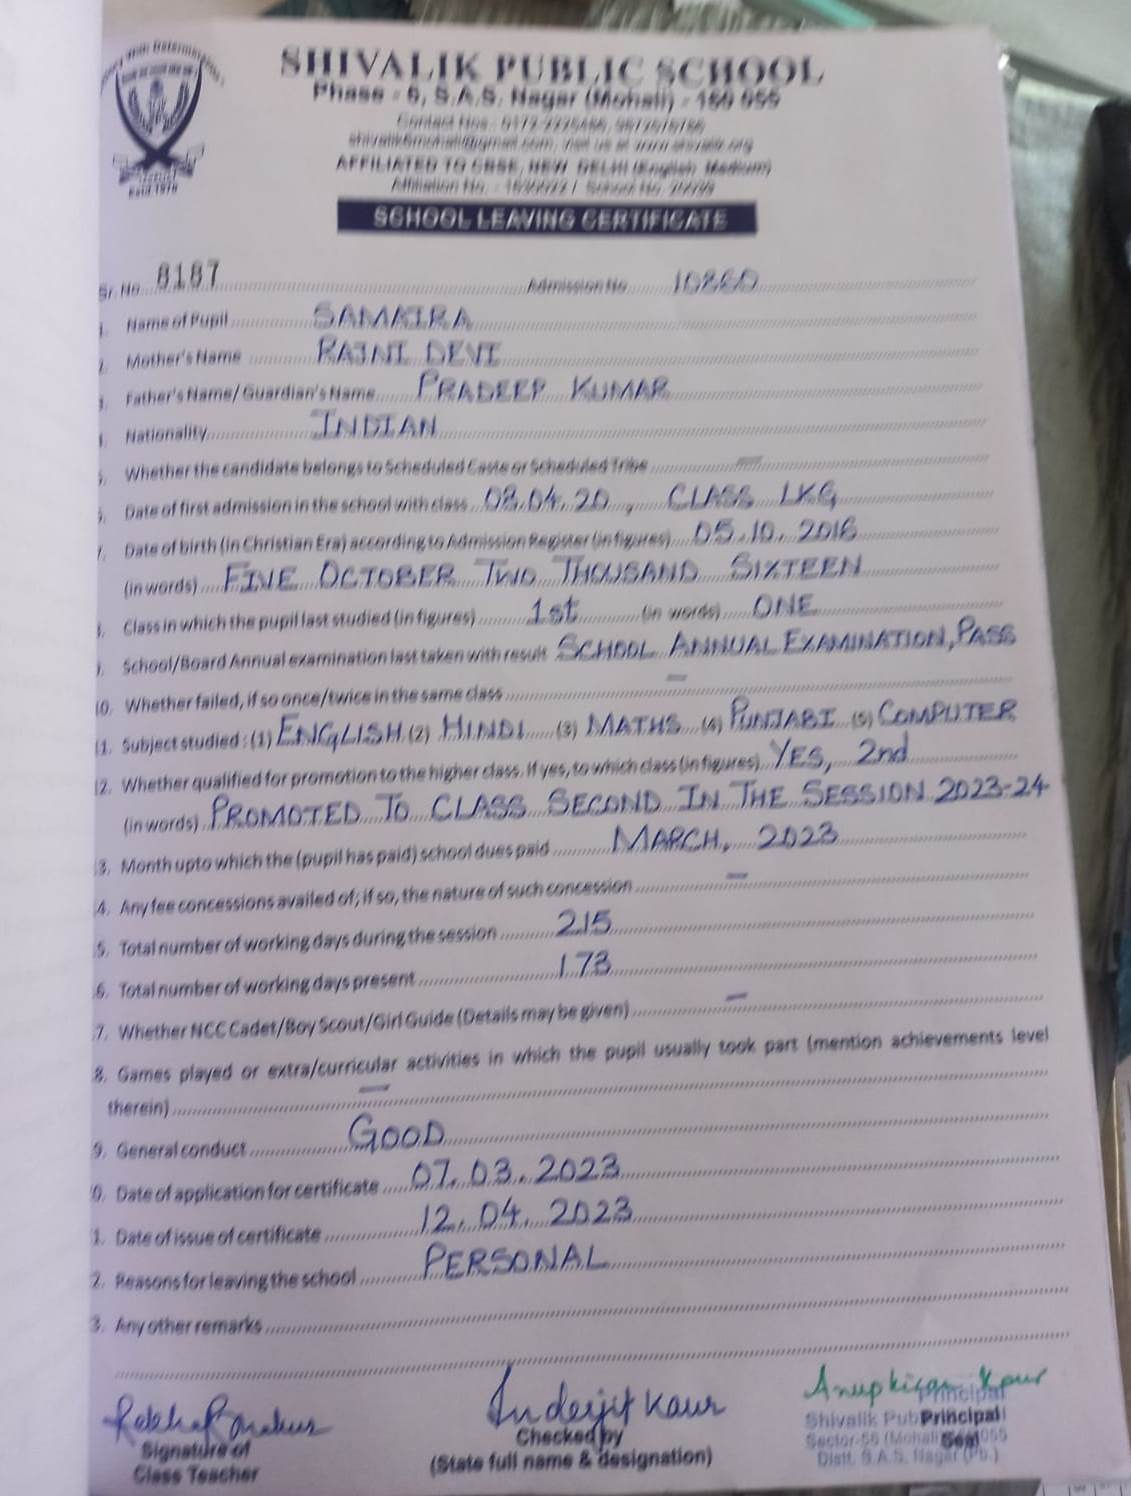 SHIVALIK PUBLIC SCHOOL
Phase - 6, S.A.S. Nagar (Mohali) - 160 055
AFFILIATED TO CBSE, NEW DELHI (English Medium)
SCHOOL LEAVING CERTIFICATE
Sr. No. 8187 Admission No. 10860
1. Name of Pupil SAMAIRA
2. Mother's Name RAJNI DEVI
3. Father's Name/Guardian's Name PRADEEP KUMAR
4. Nationality INDIAN
5. Whether the candidate belongs to Scheduled Caste or Scheduled Tribe —
6. Date of first admission in the school with class 08.04.20, CLASS LKG
7. Date of birth (in Christian Era) according to Admission Register (in figures) 05.10.2016
(in words) FIVE OCTOBER TWO THOUSAND SIXTEEN
8. Class in which the pupil last studied (in figures) 1st (in words) ONE
9. School/Board Annual examination last taken with result SCHOOL ANNUAL EXAMINATION, PASS
10. Whether failed, if so once/twice in the same class —
11. Subject studied : (1) ENGLISH (2) HINDI (3) MATHS (4) PUNJABI (5) COMPUTER
12. Whether qualified for promotion to the higher class. If yes, to which class (in figures) YES, 2nd
(in words) PROMOTED TO CLASS SECOND IN THE SESSION 2023-24
3. Month upto which the (pupil has paid) school dues paid MARCH, 2023
4. Any fee concessions availed of; if so, the nature of such concession —
5. Total number of working days during the session 215
6. Total number of working days present 173
7. Whether NCC Cadet/Boy Scout/Girl Guide (Details may be given) —
8. Games played or extra/curricular activities in which the pupil usually took part (mention achievements level
therein) —
9. General conduct GOOD
0. Date of application for certificate 07.03.2023
1. Date of issue of certificate 12.04.2023
2. Reasons for leaving the school PERSONAL
3. Any other remarks
Inderjit Kaur
Anupkiran Kaur
Signature of
Class Teacher
Checked by
(State full name & designation)
Principal
Shivalik Public
Principal
Seal
Distt. S.A.S. Nagar (Pb.)